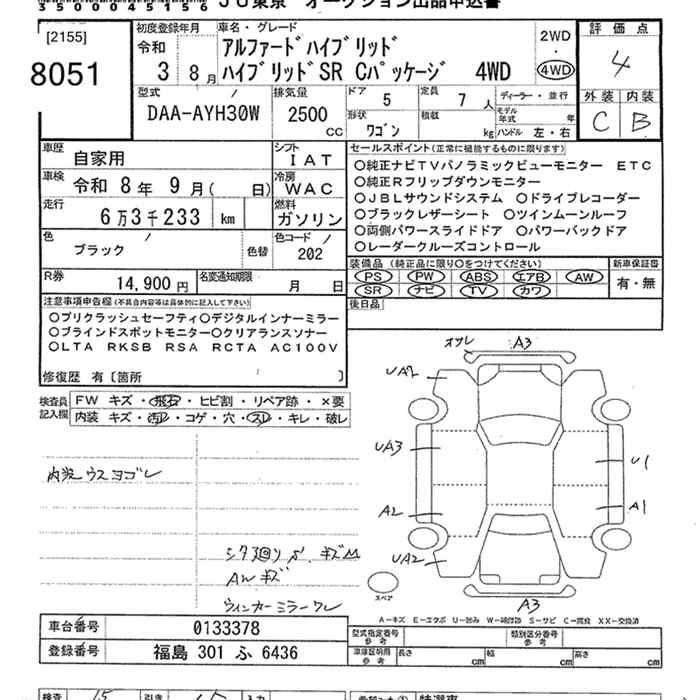 350004515 6
JU東京 オークション出品申込書
[2155]
8051
初度登録年月
令和
3 8月
車名・グレード
アルファードハイブリッド
ハイブリッドSR Cパッケージ 4WD
2WD
4WD
評価点
4
外装 内装
C B
型式
DAA-AYH30W
排気量
2500
CC
ドア 5
定員 7 人
形状 ワゴン
積載 kg
ディーラー・並行
モデル年式 年
ハンドル 左・右
車歴 自家用
シフト IAT
車検 令和 8年 9月( 日)
冷房 WAC
走行 6万3千233 km
燃料 ガソリン
色 ブラック
色替
色コード 202
R券 14,900円
名変通知期限 月 日
セールスポイント(正常に機能するものに限ります)
○純正ナビTVパノラミックビューモニター ETC
○純正Rフリップダウンモニター
○JBLサウンドシステム ○ドライブレコーダー
○ブラックレザーシート ○ツインムーンルーフ
○両側パワースライドドア ○パワーバックドア
○レーダークルーズコントロール
装備品(純正品に限り○をつけてください)
PS PW ABS エアB AW
SR ナビ TV カワ
新車保証書
有・無
後日品
注意事項申告欄(不具合内容等は具体的に記入して下さい)
○プリクラッシュセーフティ○デジタルインナーミラー
○ブラインドスポットモニター○クリアランスソナー
○LTA RKSB RSA RCTA AC100V
修復歴 有[箇所 ]
検査員記入欄
FW キズ・飛石・ヒビ割・リペア跡・×要
内装 キズ・汚レ・コゲ・穴・スレ・キレ・破レ
内装ウスヨゴレ
シタ廻りサ、キズM
AWキズ
ウィンカーミラーワレ
オサレ A3
UA2
UA3
U1
A2
A1
UA2
A3
スペア
A-キズ E-エクボ U-凹み W-補修跡 S-サビ C-腐蝕 XX-交換済
車台番号 0133378
登録番号 福島 301 ふ 6436
型式指定番号 参考
類別区分番号 参考
車庫証明用 参考
長さ cm
幅 cm
高さ cm